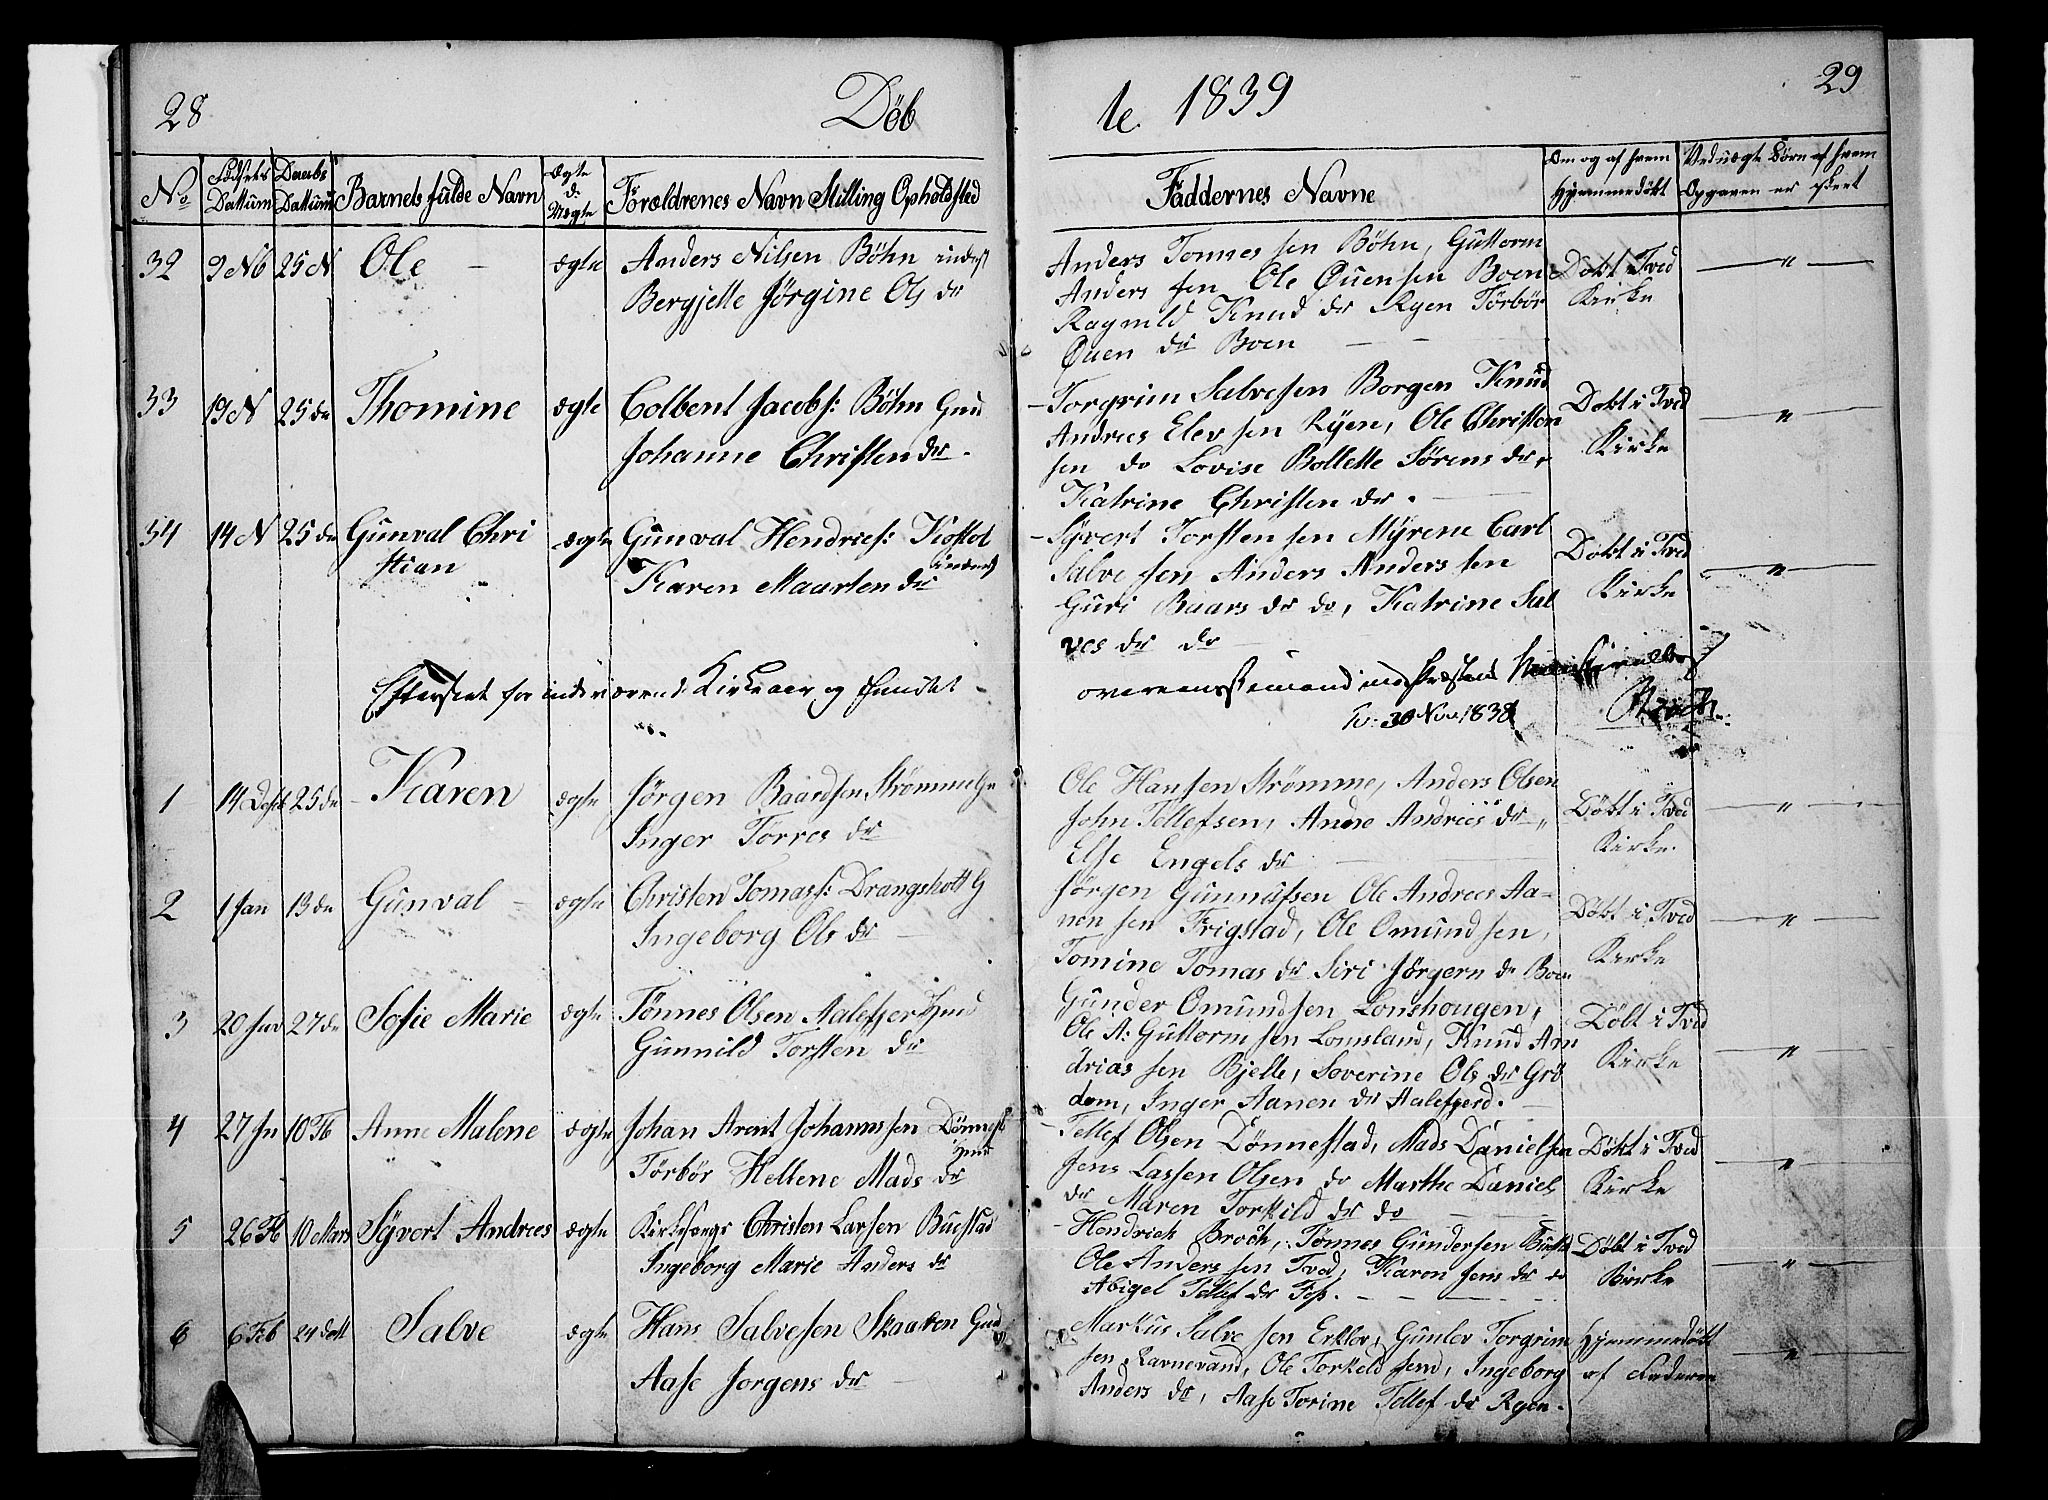 28
Döb
te 1839
29
No
Födsels Dattum
Daabs Dattum
Barnets fulde Navn
Ægte d: Uægte
Föræeldrenes Navn Stilling Opholdsted
Faddernes Navne
Om og af hvem Hjemmedöbt
Ved uægte Börn af hvem Opgaven er skeet
32 9 Nb 25 N Ole ægte Anders Nilsen Böhn inderst
Bergjette Jörgine Ols dr
Anders Tonnessen Böhn, Guttorm
Anders sen Ole Ouensen Boen
Ragnild Knud dr Ryen Törbör
Ouen dr Boen
Döbt i Tved
Kirke
33 19 N 25 de Thomine ægte Colbent Jacobs: Böhn Gmd
Johanne Christen dr.
Torgrim Salvesen Borgen Knud
Andrees Elev sen Ryen, Ole Christen
sen do Lovise Bollette Sörens dr,
Katrine Christen dr.
Döbt i Tved
Kirke
34 14 N 25 de Gunval Chri
stian
ægte Gunval Hendrics: Kostol
inderst
Karen Maarten dr
Syvert Torsten sen Myrene Carl
Salve sen Anders Anders sen
Guri Baars dr do, Katrine Sal
ves dr do
Döbt i Tved
Kirke
Efterseet for indeværende Kirkeaar og fundet
overeensstemmende med Præstens
30 Nov 1838
1 14 Desb 25 de Karen ægte Jörgen Baardsen Strömme
Inger Törres dr
Ole Hansen Strömme, Anders Olsen
John Tellefsen, Anne Andreis dr,
Else Engels dr
Döbt i Tved
Kirke.
2 1 Jan 13 de Gunval ægte Christen Tomass: Drangsholt G
Ingeborg Ols dr
Jörgen Gunnufsen Ole Andrees Aa-
non sen Frigstad, Ole Omundsen,
Tomine Tomas dr Siri Jörgern dr Boen
Döbt i Tved
Kirke
3 20 Jan 27 de Sofie Marie ægte Tönnes Olsen Aalefjer
Gunnild Torsten dr
Gunder Omundsen Lonshougen,
Ole A: Guttorm sen Lomsland, Knud An
drias sen Bjelle, Soverine Ols dr Grö
dem, Inger Aanen dr Aalefjerd.
Döbt i Tved
Kirke
4 27 Jn 10 Fb Anne Malene ægte Johan Arent Johanns sen Dönnest
Törbör Hellene Mads dr
Tellef Olsen Dönnestad, Mads Danielsen
Jens Lassen Olsen do Marthe Daniels
dr Maren Torkild dr do
Döbt i Tved
Kirke
5 26 Fb 10 Mars Syvert Andrees ægte Kirkesangr Christen Larsen Buestad
Ingeborg Marie Anders dr
Hendrich Broch, Tönnes Gundersen Buestd
Ole Anders sen Tved, Karen Jens dr do
Abigel Tellef dr Foss.
Döbt i Tved
Kirke
6 6 Feb 24 dett Salve ægte Hans Salvesen Skaaken Gmd
Aase Jorgens dr
Markus Salve sen Erklev, Gunlev Torgrim
sen Ravnevand, Ole Torkeld sen, Ingeborg
Anders dr, Aase Torine Tellef dr Ryen.
Hjemmedöbt
af Faderen